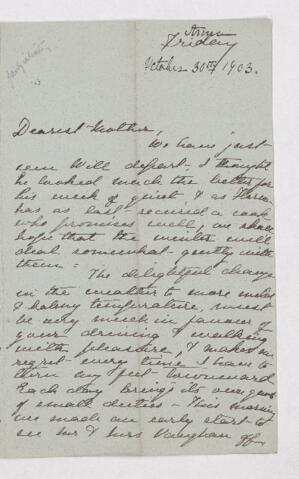 Friday
October 30th 1903.
Dearest Mother,
We have just
seen Will depart - I thought
he looked much the better for
his week of quiet, & as
has at last secured a cook
who promises well, we shall
hope that the winter will
deal somewhat gently with
them -
The delightful change
in the weather to more
& balmy temperature, must
be very much in favour of
your driving & walking
with pleasure, & makes me
regret every time I have to
turn my feet townward
Each day brings its very
of small duties - This morning
we made an early start to
see Mr & Mrs Vaughan off